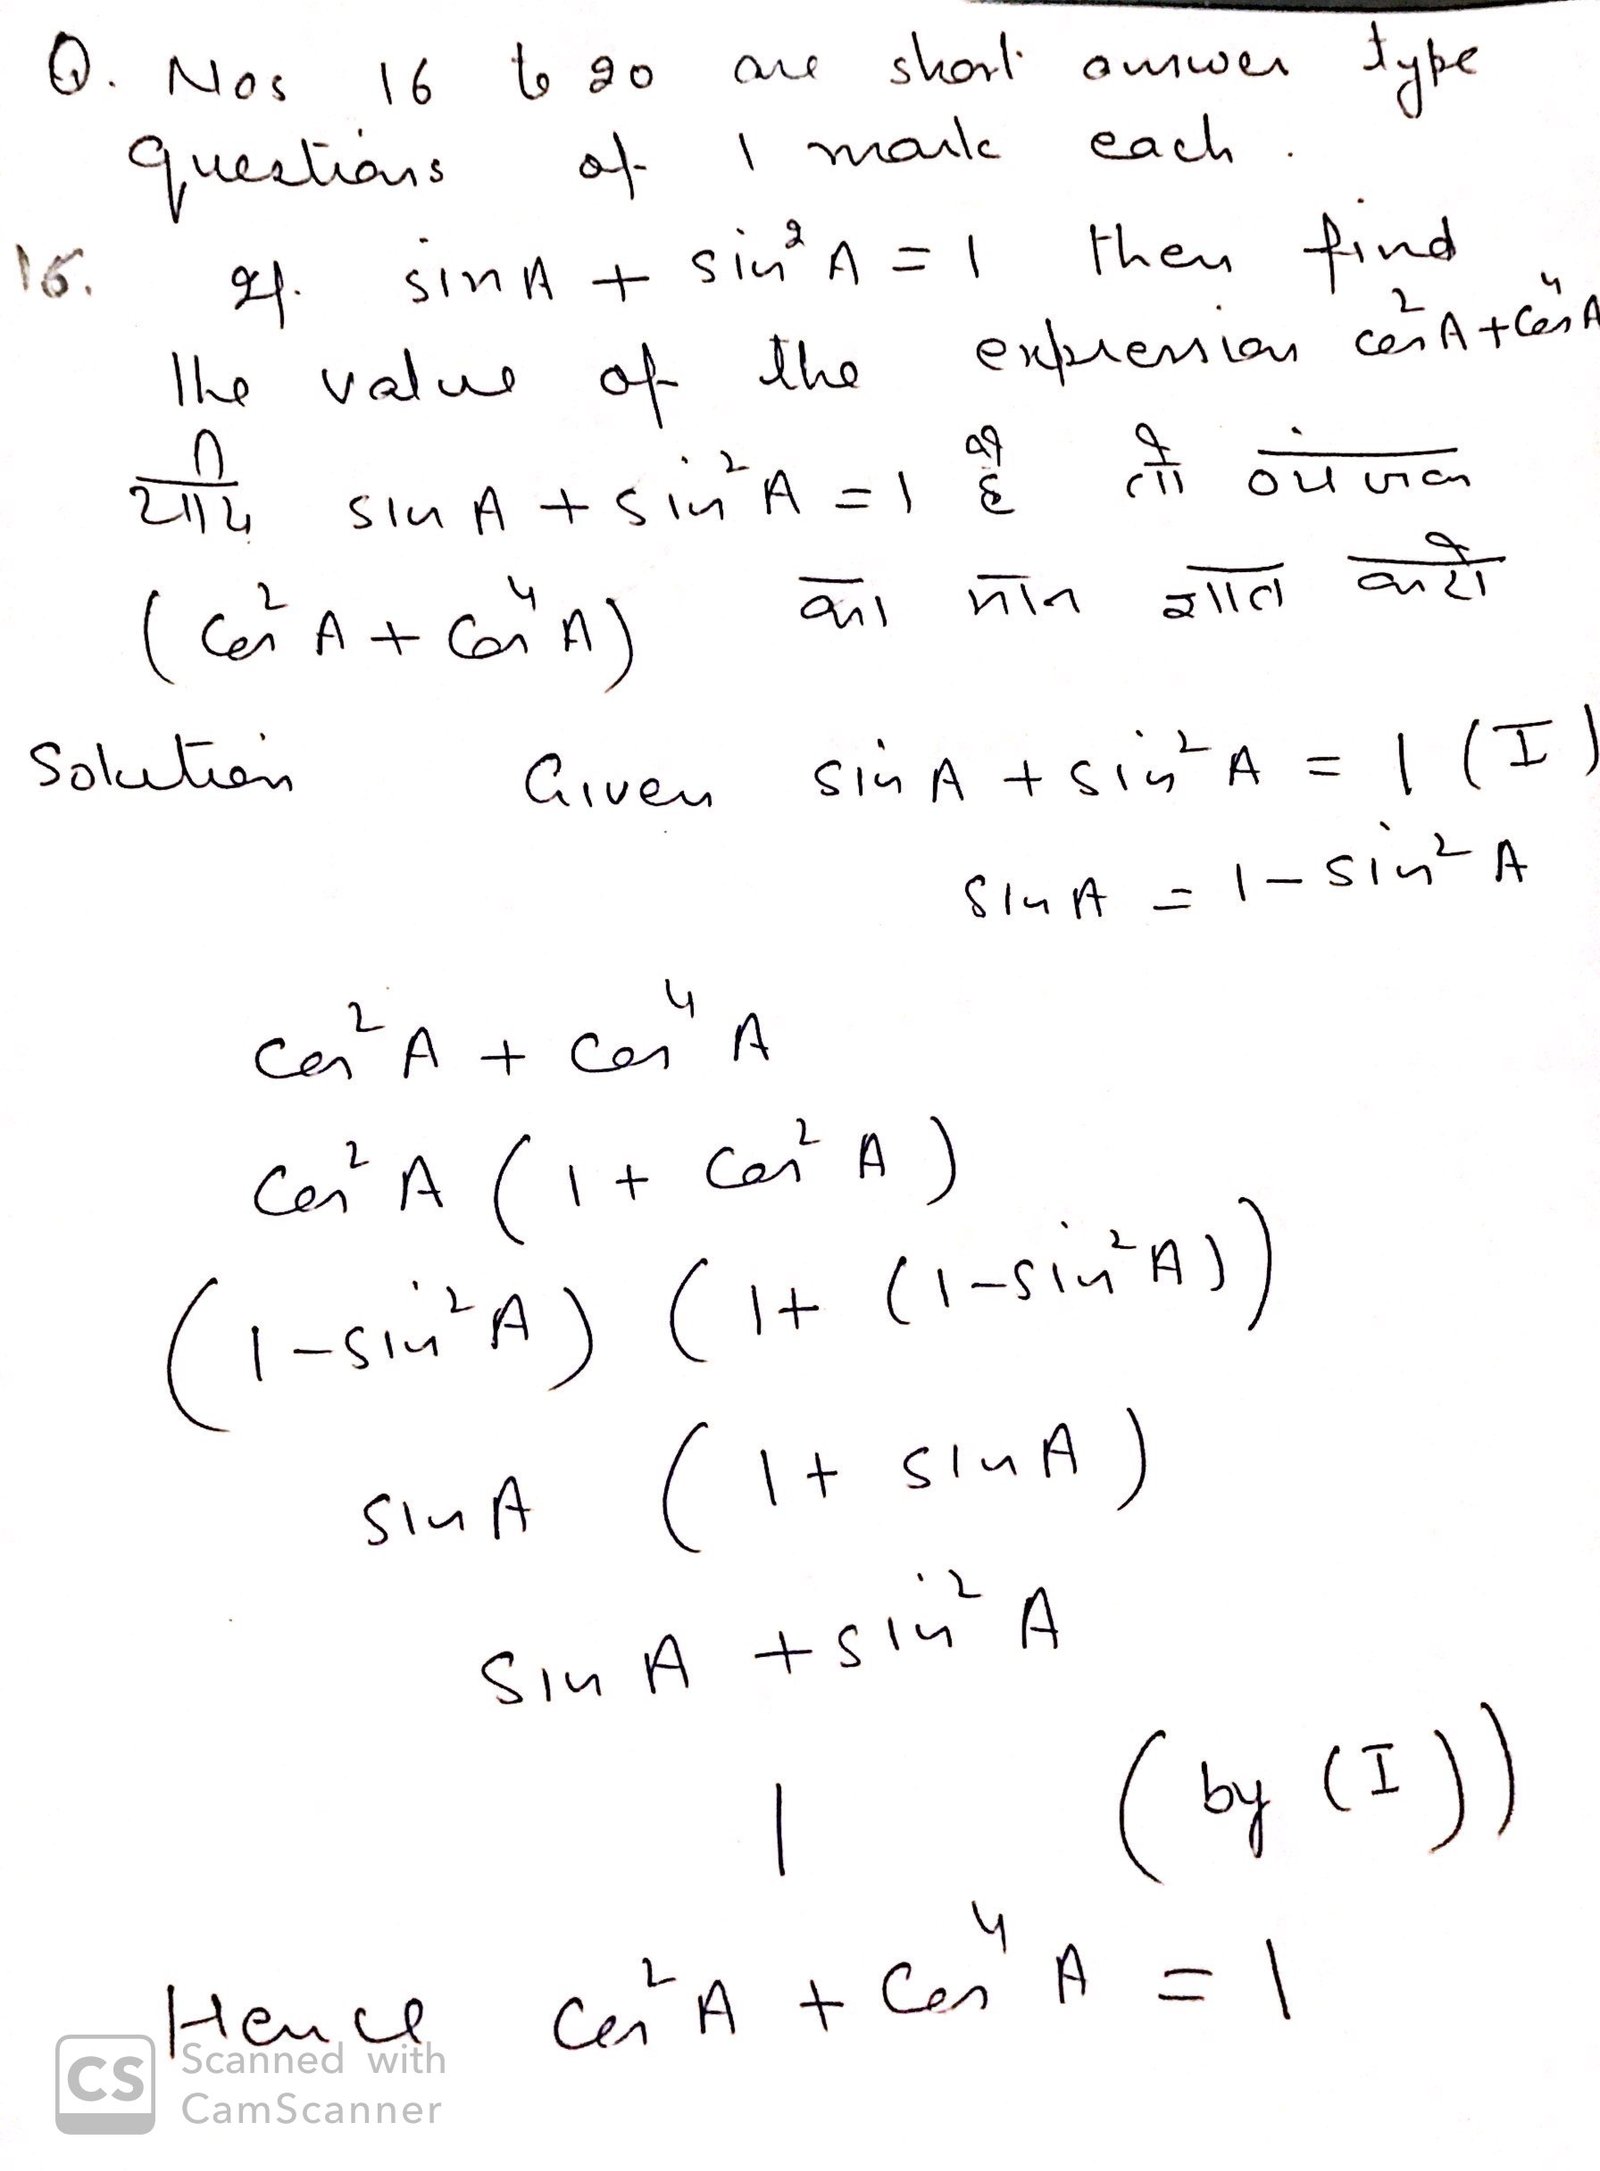 Q. Nos 16 to 20 are short answer type
questions of 1 mark each.
16. If sin A + sin² A = 1 then find
the value of the expression cos² A + cos⁴ A
यदि sin A + sin² A = 1 है तो व्यंजक
(cos² A + cos⁴ A) का मान ज्ञात करो
Solution Given sin A + sin² A = 1 (I)
sin A = 1 - sin² A
cos² A + cos⁴ A
cos² A (1 + cos² A)
(1 - sin² A) (1 + (1 - sin² A))
sin A (1 + sin A)
sin A + sin² A
1 (by (I))
Hence cos² A + cos⁴ A = 1
CS Scanned with
CamScanner